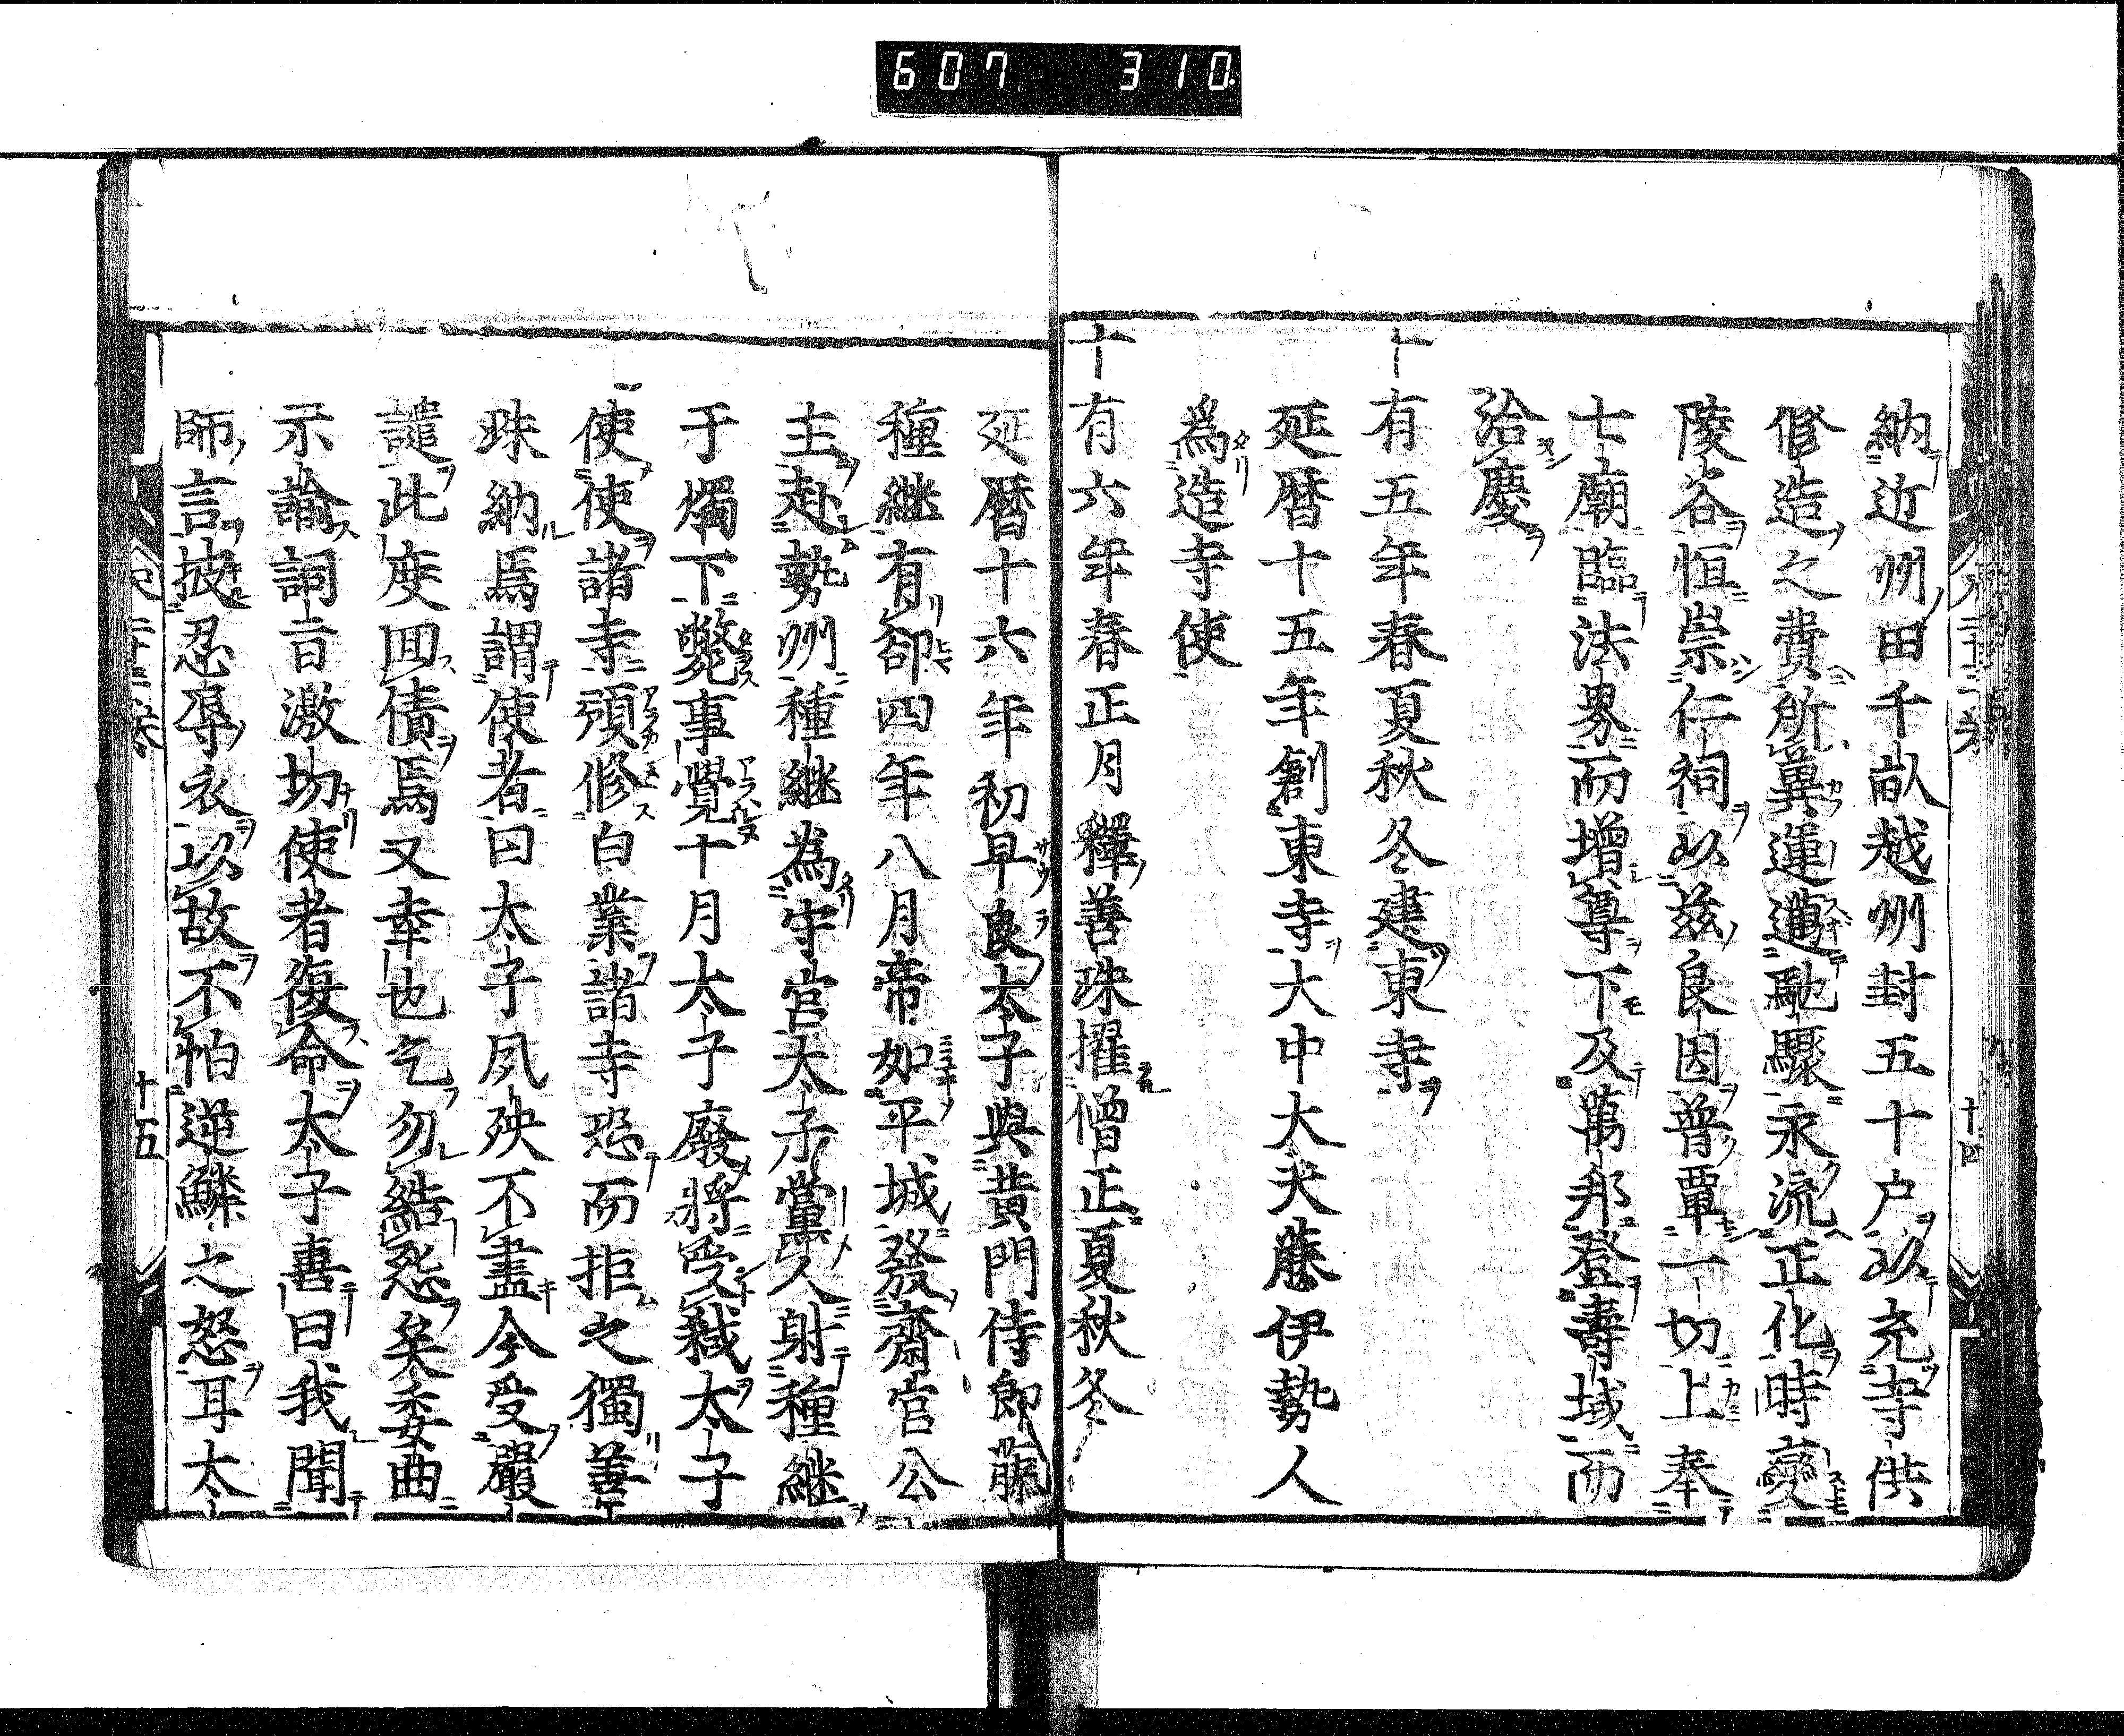 607 310
納近州田千畝越州封五十戶以充寺供
修造之費所冀運邁馳驟永流正化時變
陵谷恒崇仁祠以茲良因普覃一切上奉
七廟臨法界而增尊下及萬邦登壽域而
洽慶
十有五年春夏秋冬建東寺
延曆十五年創東寺大中大夫藤伊勢人
爲造寺使
十有六年春正月釋善珠擢僧正夏秋冬
延曆十六年初早良太子與黃門侍郎藤
種繼有郤四年八月帝如平城發齋宮公
主赴勢州種繼為守官太子黨人射種繼
于燭下斃事覺十月太子廢將受殛太子
使使諸寺預修白業諸寺恐而拒之獨善
珠納焉謂使者曰太子夙殃不盡今受嚴
譴此度囬債焉又幸也乞勿結怨矣委曲
示諭詞旨激切使者復命太子喜曰我聞
師言披忍辱衣以故不怕逆鱗之怒耳太
十四
十五